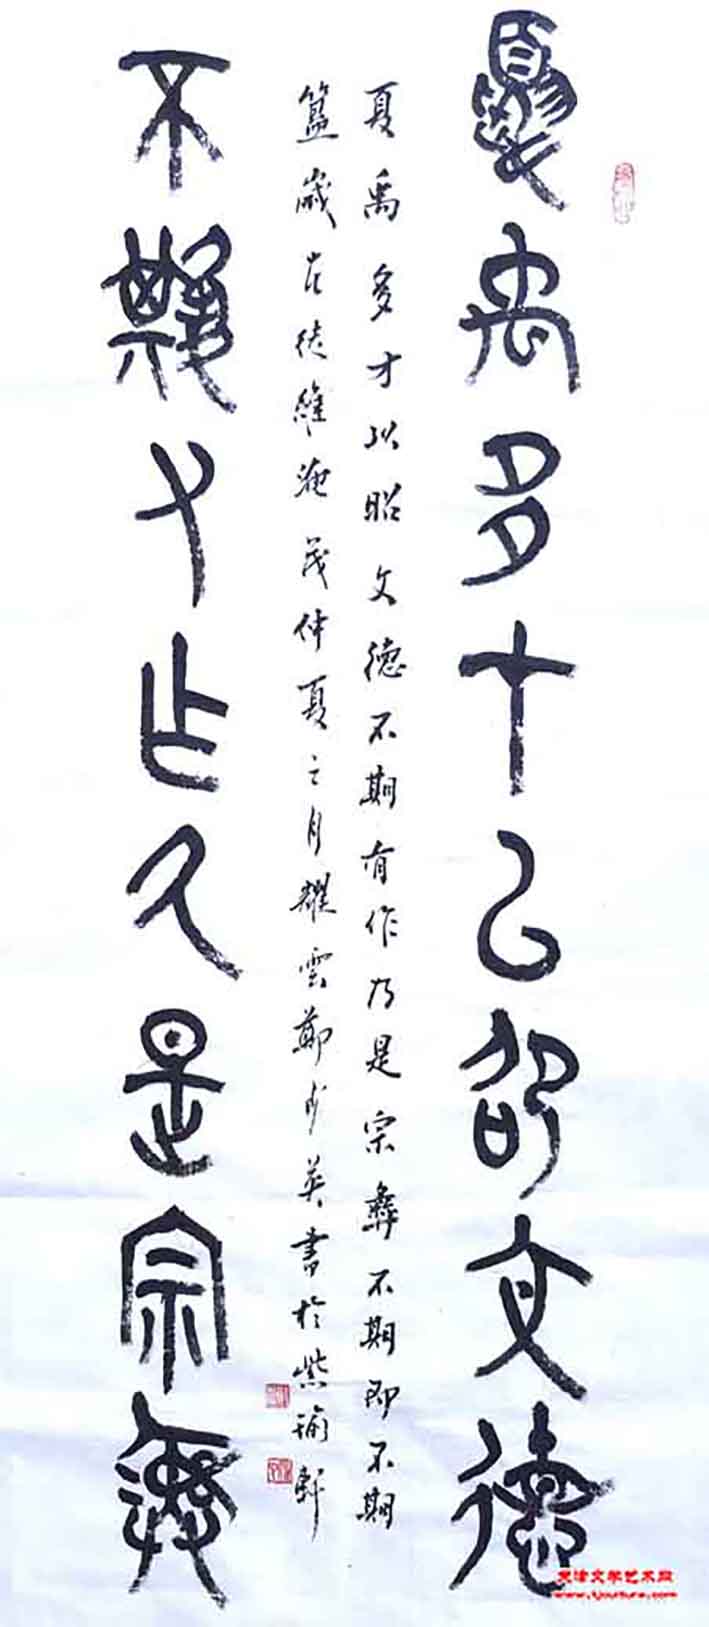 夏禹多才以昭文德
夏禹多才以昭文德不期有作乃是宗彝不期即不期
簠歲在徒維淹茂仲夏之月耀雲鄭少英書於紫瑜軒
不期有作乃是宗彝
天津文学艺术网